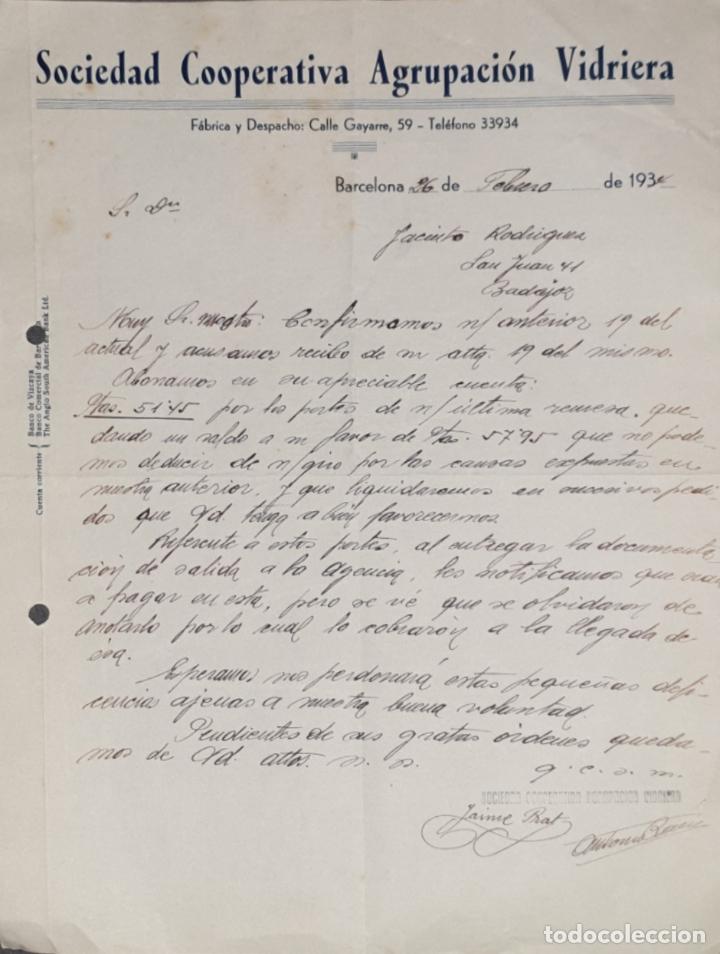 Sociedad Cooperativa Agrupación Vidriera
Fábrica y Despacho: Calle Gayarre, 59 - Teléfono 33934
Barcelona 26 de Febrero de 1934
S. Dn
Jacinto Rodriguez
San Juan 41
Badajoz
Muy Sr. nuestro: Confirmamos n/ anterior 19 del
actual y acusamos recibo de su atta. 19 del mismo.
Abonamos en su apreciable cuenta:
Ptas. 51'45 por los portes de n/ última remesa, que-
dando un saldo a su favor de Ptas. 57'95 que no pode-
mos deducir de n/ giro por las causas expuestas en
nuestra anterior, y que liquidaremos en sucesivos pedi-
dos que Vd. tenga a bien favorecernos.
Referente a estos portes, al entregar la documenta
ción de salida a la Agencia, les notificamos que eran
a pagar en esta, pero se vé que se olvidaron de
anotarlo por lo cual lo cobraron a la llegada de
esa.
Esperamos nos perdonará estas pequeñas defi-
ciencias ajenas a nuestra buena voluntad.
Pendientes de sus gratas órdenes queda-
mos de Vd. attos. s. s.
q. e. s. m.
SOCIEDAD COOPERATIVA AGRUPACION VIDRIERA
Jaime Prat
Antonio
Cuenta corriente
Banco de Vizcaya
Banco Comercial de Bar
The Anglo South American Bank Ltd.
todocoleccion